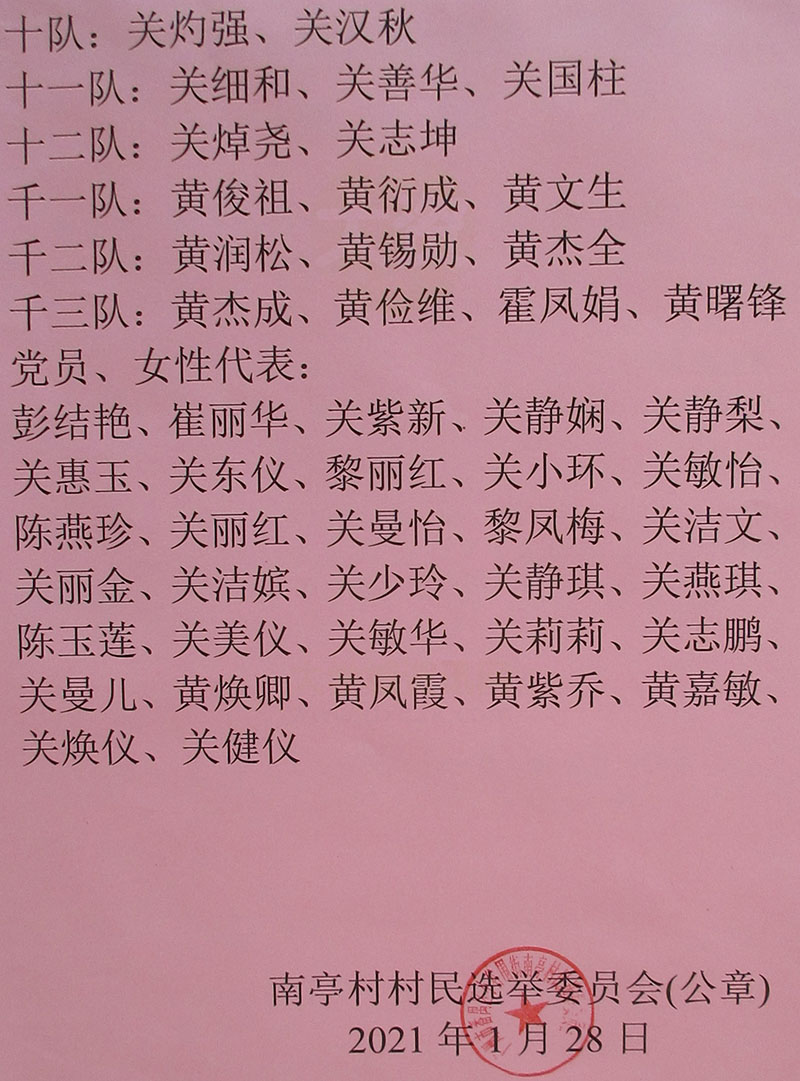 十队：关灼强、关汉秋
十一队：关细和、关善华、关国柱
十二队：关焯尧、关志坤
千一队：黄俊祖、黄衍成、黄文生
千二队：黄润松、黄锡勋、黄杰全
千三队：黄杰成、黄俭维、霍凤娟、黄曙锋
党员、女性代表：
彭结艳、崔丽华、关紫新、关静娴、关静梨、
关惠玉、关东仪、黎丽红、关小环、关敏怡、
陈燕珍、关丽红、关曼怡、黎凤梅、关洁文、
关丽金、关洁嫔、关少玲、关静琪、关燕琪、
陈玉莲、关美仪、关敏华、关莉莉、关志鹏、
关曼儿、黄焕卿、黄凤霞、黄紫乔、黄嘉敏、
关焕仪、关健仪
南亭村村民选举委员会(公章)
2021年1月28日